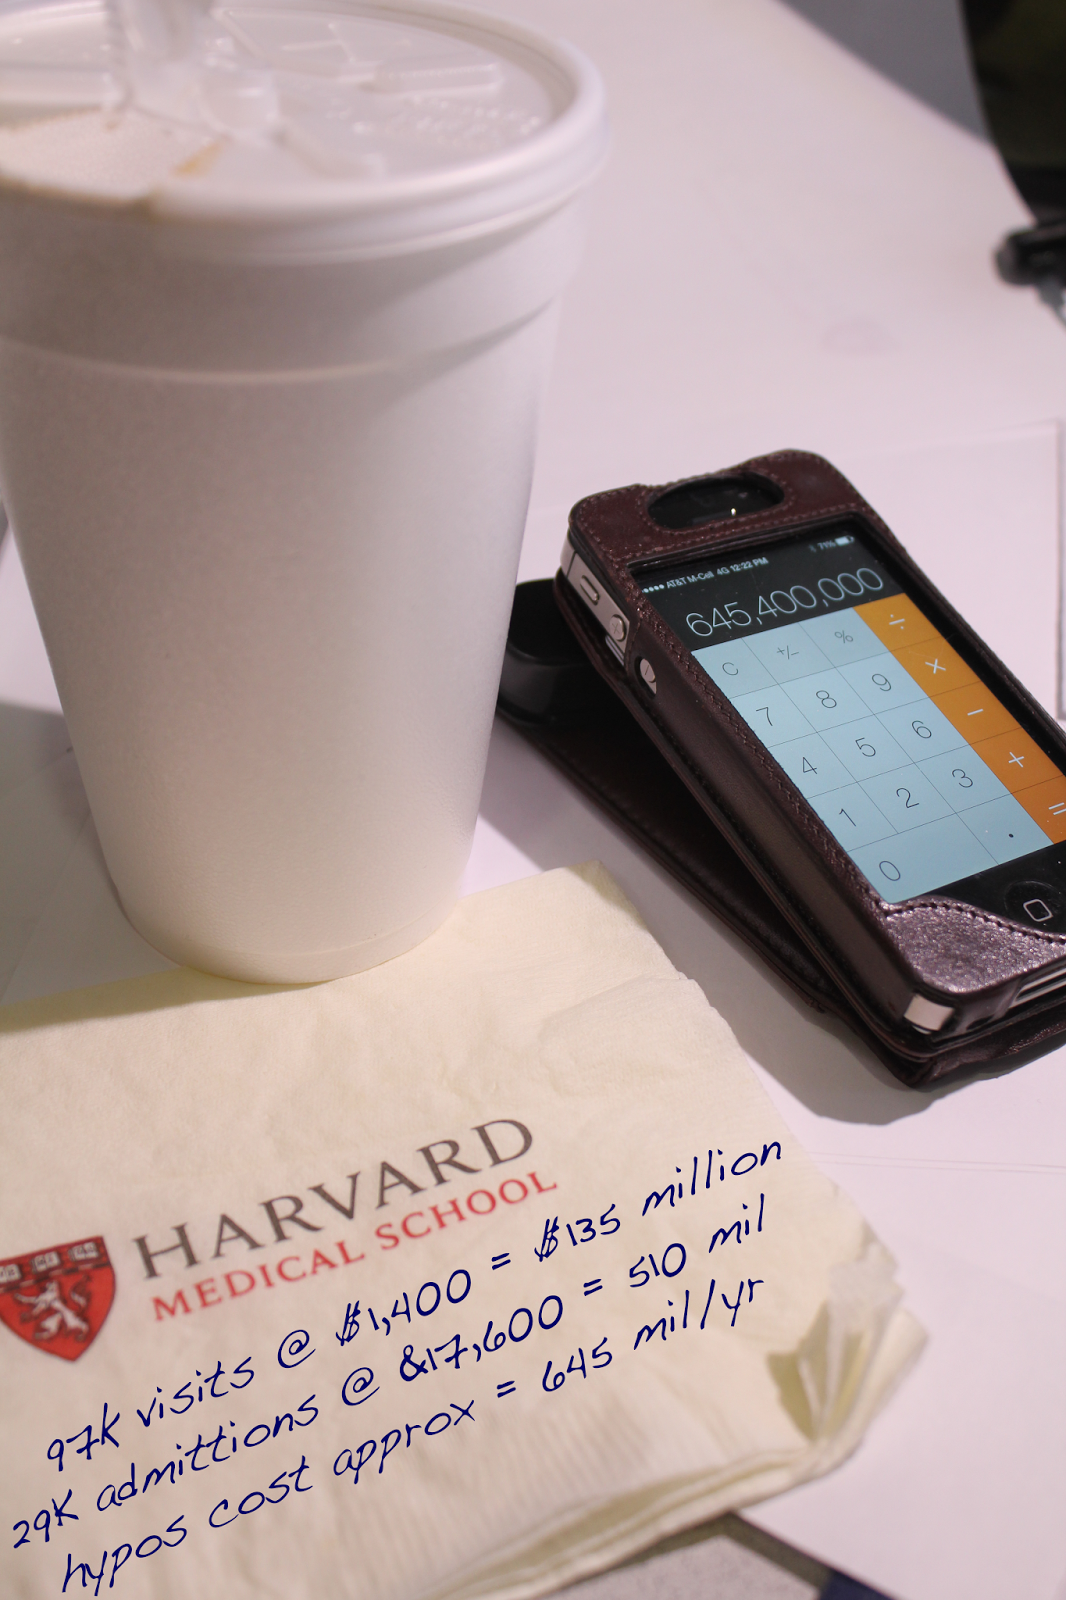 AT&T M-Cell 4G 12:22 PM 71%
645,400,000
C +/- % ÷
7 8 9 ×
4 5 6 −
1 2 3 +
0 . =
HARVARD
MEDICAL SCHOOL
97K visits @ $1,400 = $135 million
29K admittions @ &17,600 = 510 mil
hypos cost approx = 645 mil/yr